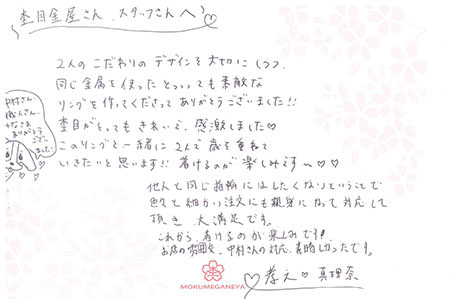 杢目金屋さん スタッフさんへ♡
2人のこだわりのデザインを大切にしつつ、
同じ金属を使ったとっっっても素敵な
リングを作ってくださってありがとうございました!!
杢目がとってもきれいで、感激しました♡
このリングと一緒に2人で歳を重ねて
いきたいと思います!! 着けるのが楽しみです〜♡♡
中村さん、
職人さん、
ありがとう
ござい
ました。
他人と同じ指輪にはしたくないということで
色々と細かい注文にも親身になって対応して
頂き、大満足です。
これから、着けるのが楽しみです!
お店の雰囲気、中村さんの対応、素晴しかったです。
♡孝之♡真理奈
MOKUMEGANEYA